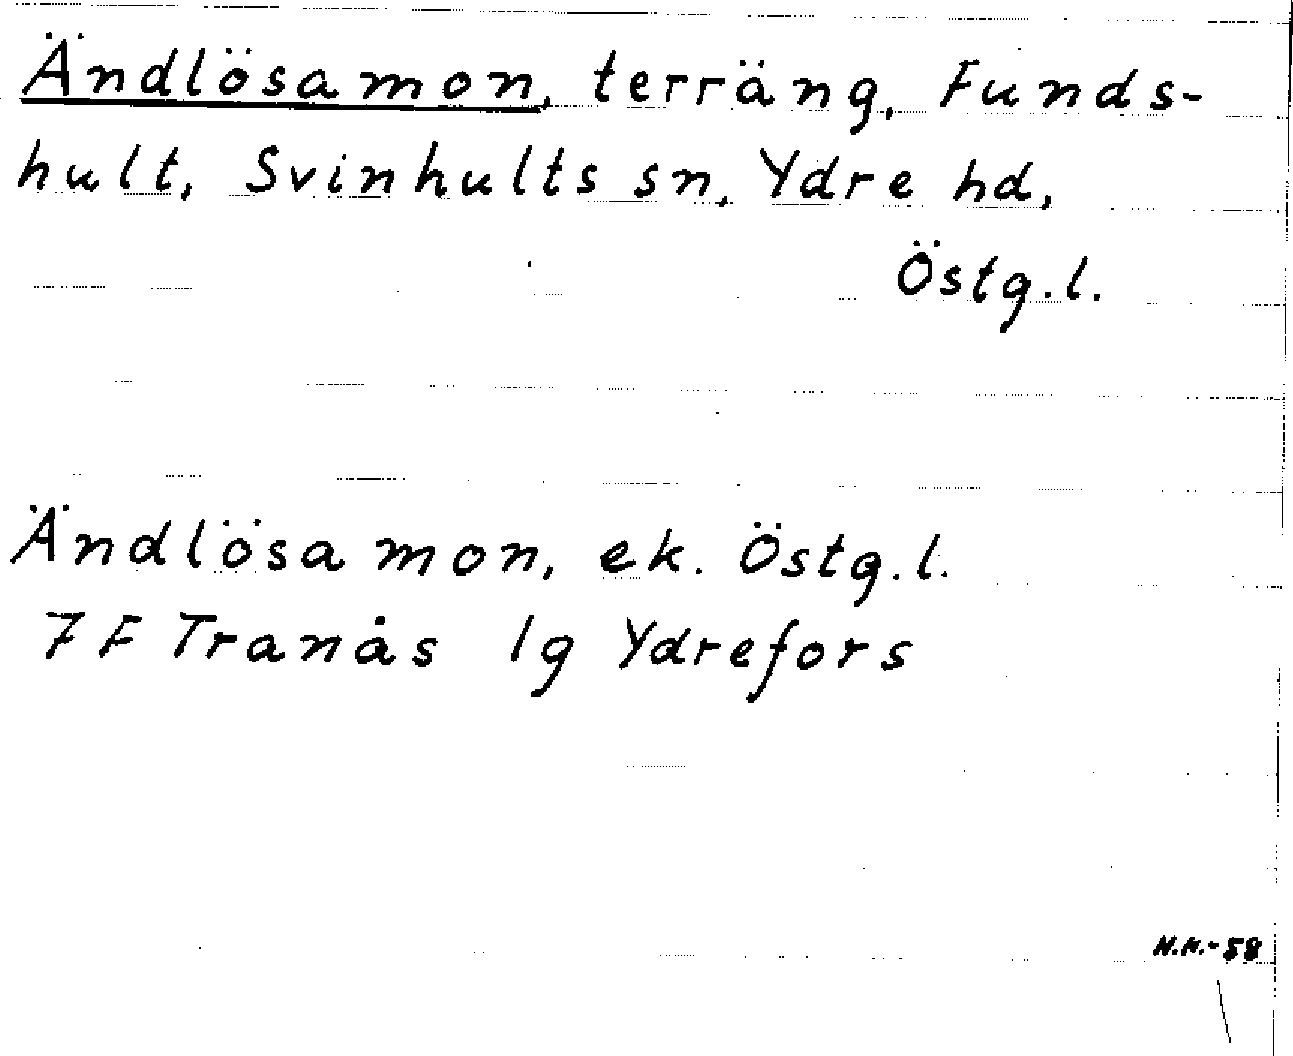 Ändlösamon, terräng, Funds-
hult, Svinhults sn, Ydre hd,
Östg.l.
Ändlösa mon, ek. Östg.l.
7 F Tranås 1g Ydrefors
N.N.-58